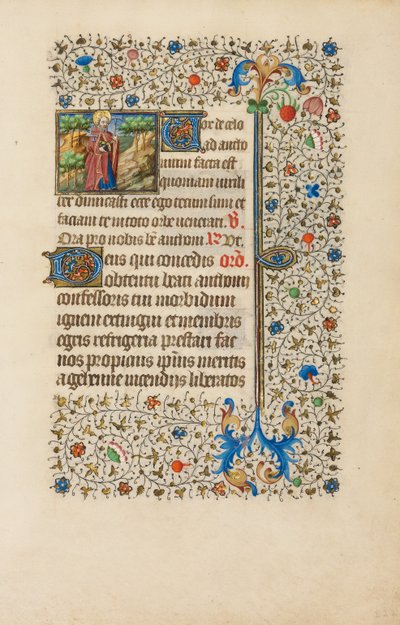 Vox de celo
ad antho
nium facta est
quoniam virili
ter dimicasti ecce ego tecum sum et
faciam te in toto orbe venerari. V.
Ora pro nobis bte anthoni. R. Ut.
Deus qui concedis orō.
obtentu beati anthonii
confessoris tui morbidum
ignem extingui et membris
egris refrigeria prestari fac
nos propicius ipius meritis
a gehenne incendiis liberatos